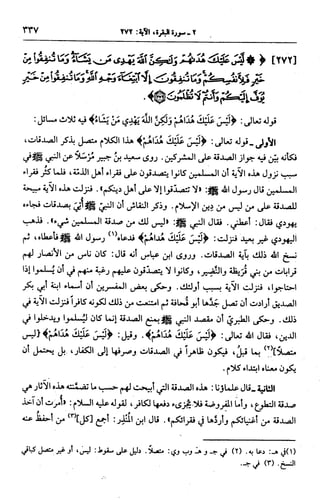 ٢ - سورة البقرة، الآية: ٢٧٢
٣٣٧
[٢٧٢] ﴿ ۞ لَيْسَ عَلَيْكَ هُدَاهُمْ وَلَٰكِنَّ اللَّهَ يَهْدِي مَن يَشَاءُ وَمَا تُنفِقُوا مِنْ
خَيْرٍ فَلِأَنفُسِكُمْ وَمَا تُنفِقُونَ إِلَّا ابْتِغَاءَ وَجْهِ اللَّهِ وَمَا تُنفِقُوا مِنْ خَيْرٍ
يُوَفَّ إِلَيْكُمْ وَأَنتُمْ لَا تُظْلَمُونَ ﴾.
قوله تعالى: ﴿لَيْسَ عَلَيْكَ هُدَاهُمْ وَلَكِنَّ اللَّهَ يَهْدِي مَنْ يَشَاءُ﴾ فيه ثلاث مسائل:
الأولى - قوله تعالى: ﴿لَيْسَ عَلَيْكَ هُدَاهُمْ﴾ هذا الكلام متصل بذكر الصدقات،
فكأنه بيّن فيه جواز الصدقة على المشركين. روى سعيد بن جبير مُرْسَلاً عن النبي ﷺ في
سبب نزول هذه الآية أن المسلمين كانوا يتصدقون على فقراء أهل الذمّة، فلما كثُر فقراء
المسلمين قال رسول الله ﷺ: «لا تتصدقوا إلا على أهل دينكم». فنزلت هذه الآية مبيحة
للصدقة على من ليس من دين الإسلام. وذكر النقاش أن النبيّ ﷺ أُتِي بصدقات فجاءه
يهوديّ فقال: أعطني. فقال النبيّ ﷺ: «ليس لك من صدقة المسلمين شيء». فذهب
اليهوديّ غير بعيد فنزلت: ﴿لَيْسَ عَلَيْكَ هُدَاهُمْ﴾ فدعاه(١) رسول الله ﷺ فأعطاه، ثم
نسخ الله ذلك بآية الصدقات. وروى ابن عباس أنه قال: كان ناس من الأنصار لهم
قرابات من بني قُريظة والنَّضِير، وكانوا لا يتصدّقون عليهم رغبة منهم في أن يُسلموا إذا
احتاجوا، فنزلت الآية بسبب أولئك. وحكى بعض المفسرين أن أسماء ابنة أبي بكر
الصديق أرادت أن تصل جَدّها أبو قُحافة ثم امتنعت من ذلك لكونه كافراً فنزلت الآية في
ذلك. وحكى الطبريّ أن مقصد النبي ﷺ بمنع الصدقة إنما كان ليُسلموا ويدخلوا في
الدين، فقال الله تعالى: ﴿لَيْسَ عَلَيْكَ هُدَاهُمْ﴾. وقيل: ﴿لَيْسَ عَلَيْكَ هُدَاهُمْ﴾ [ليس
متصلاً](٢) بما قبلُ، فيكون ظاهراً في الصدقات وصرفها إلى الكفار، بل يحتمل أن
يكون معناه ابتداء كلام.
الثانية - قال علماؤنا: هذه الصدقة التي أُبيحت لهم حسب ما تضمنته هذه الآثار هي
صدقة التطوع، وأما المفروضة فلا يجزىء دفعها لكافر، لقوله عليه السلام: «أُمرت أن آخذ
الصدقة من أغنيائكم وأردّها في فقرائكم». قال ابن المُنْذِر: أجمع [كل](٣) من أحفظ عنه
(١) في هـ: دعا به. (٢) في جـ و هـ وب وي: متصلاً. دليل على سقوط: ليس، أو غير متصل كباقي
النسخ. (٣) في جـ.